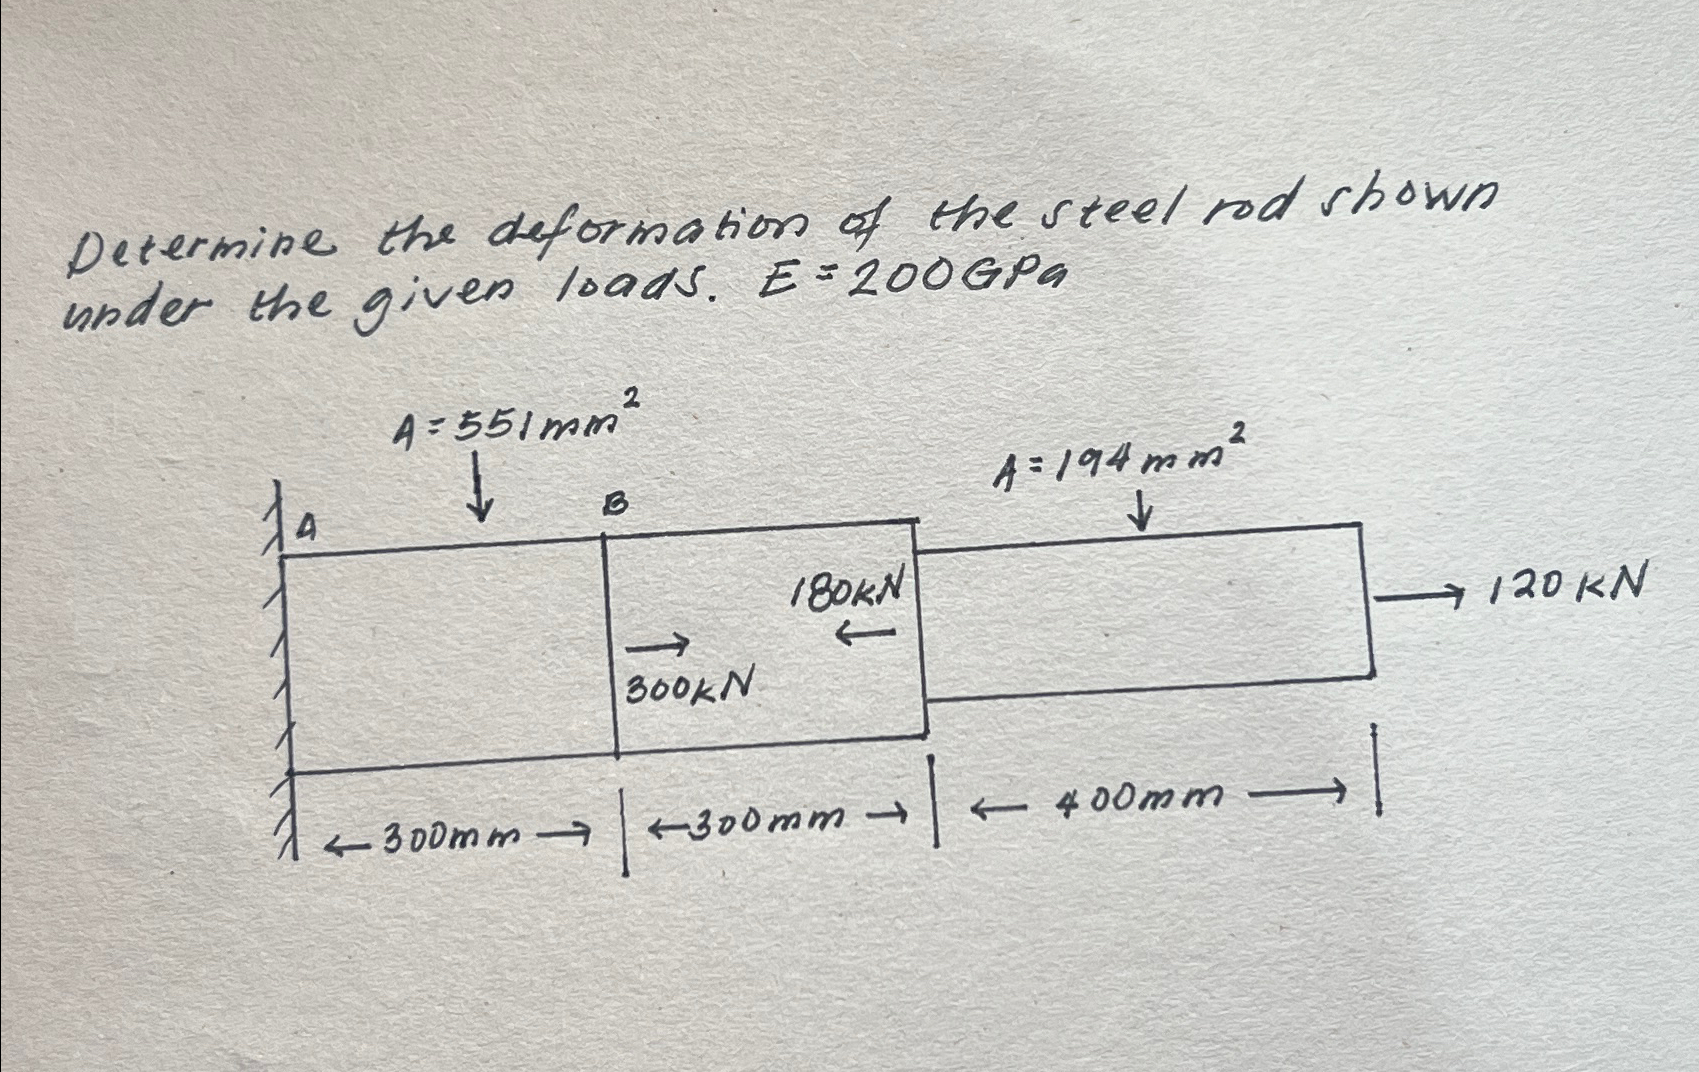 Determine the deformation of the steel rod shown
under the given loads. E=200GPa
A=551mm²
A=194mm²
A
B
180kN
120KN
300kN
300mm
300mm
400mm